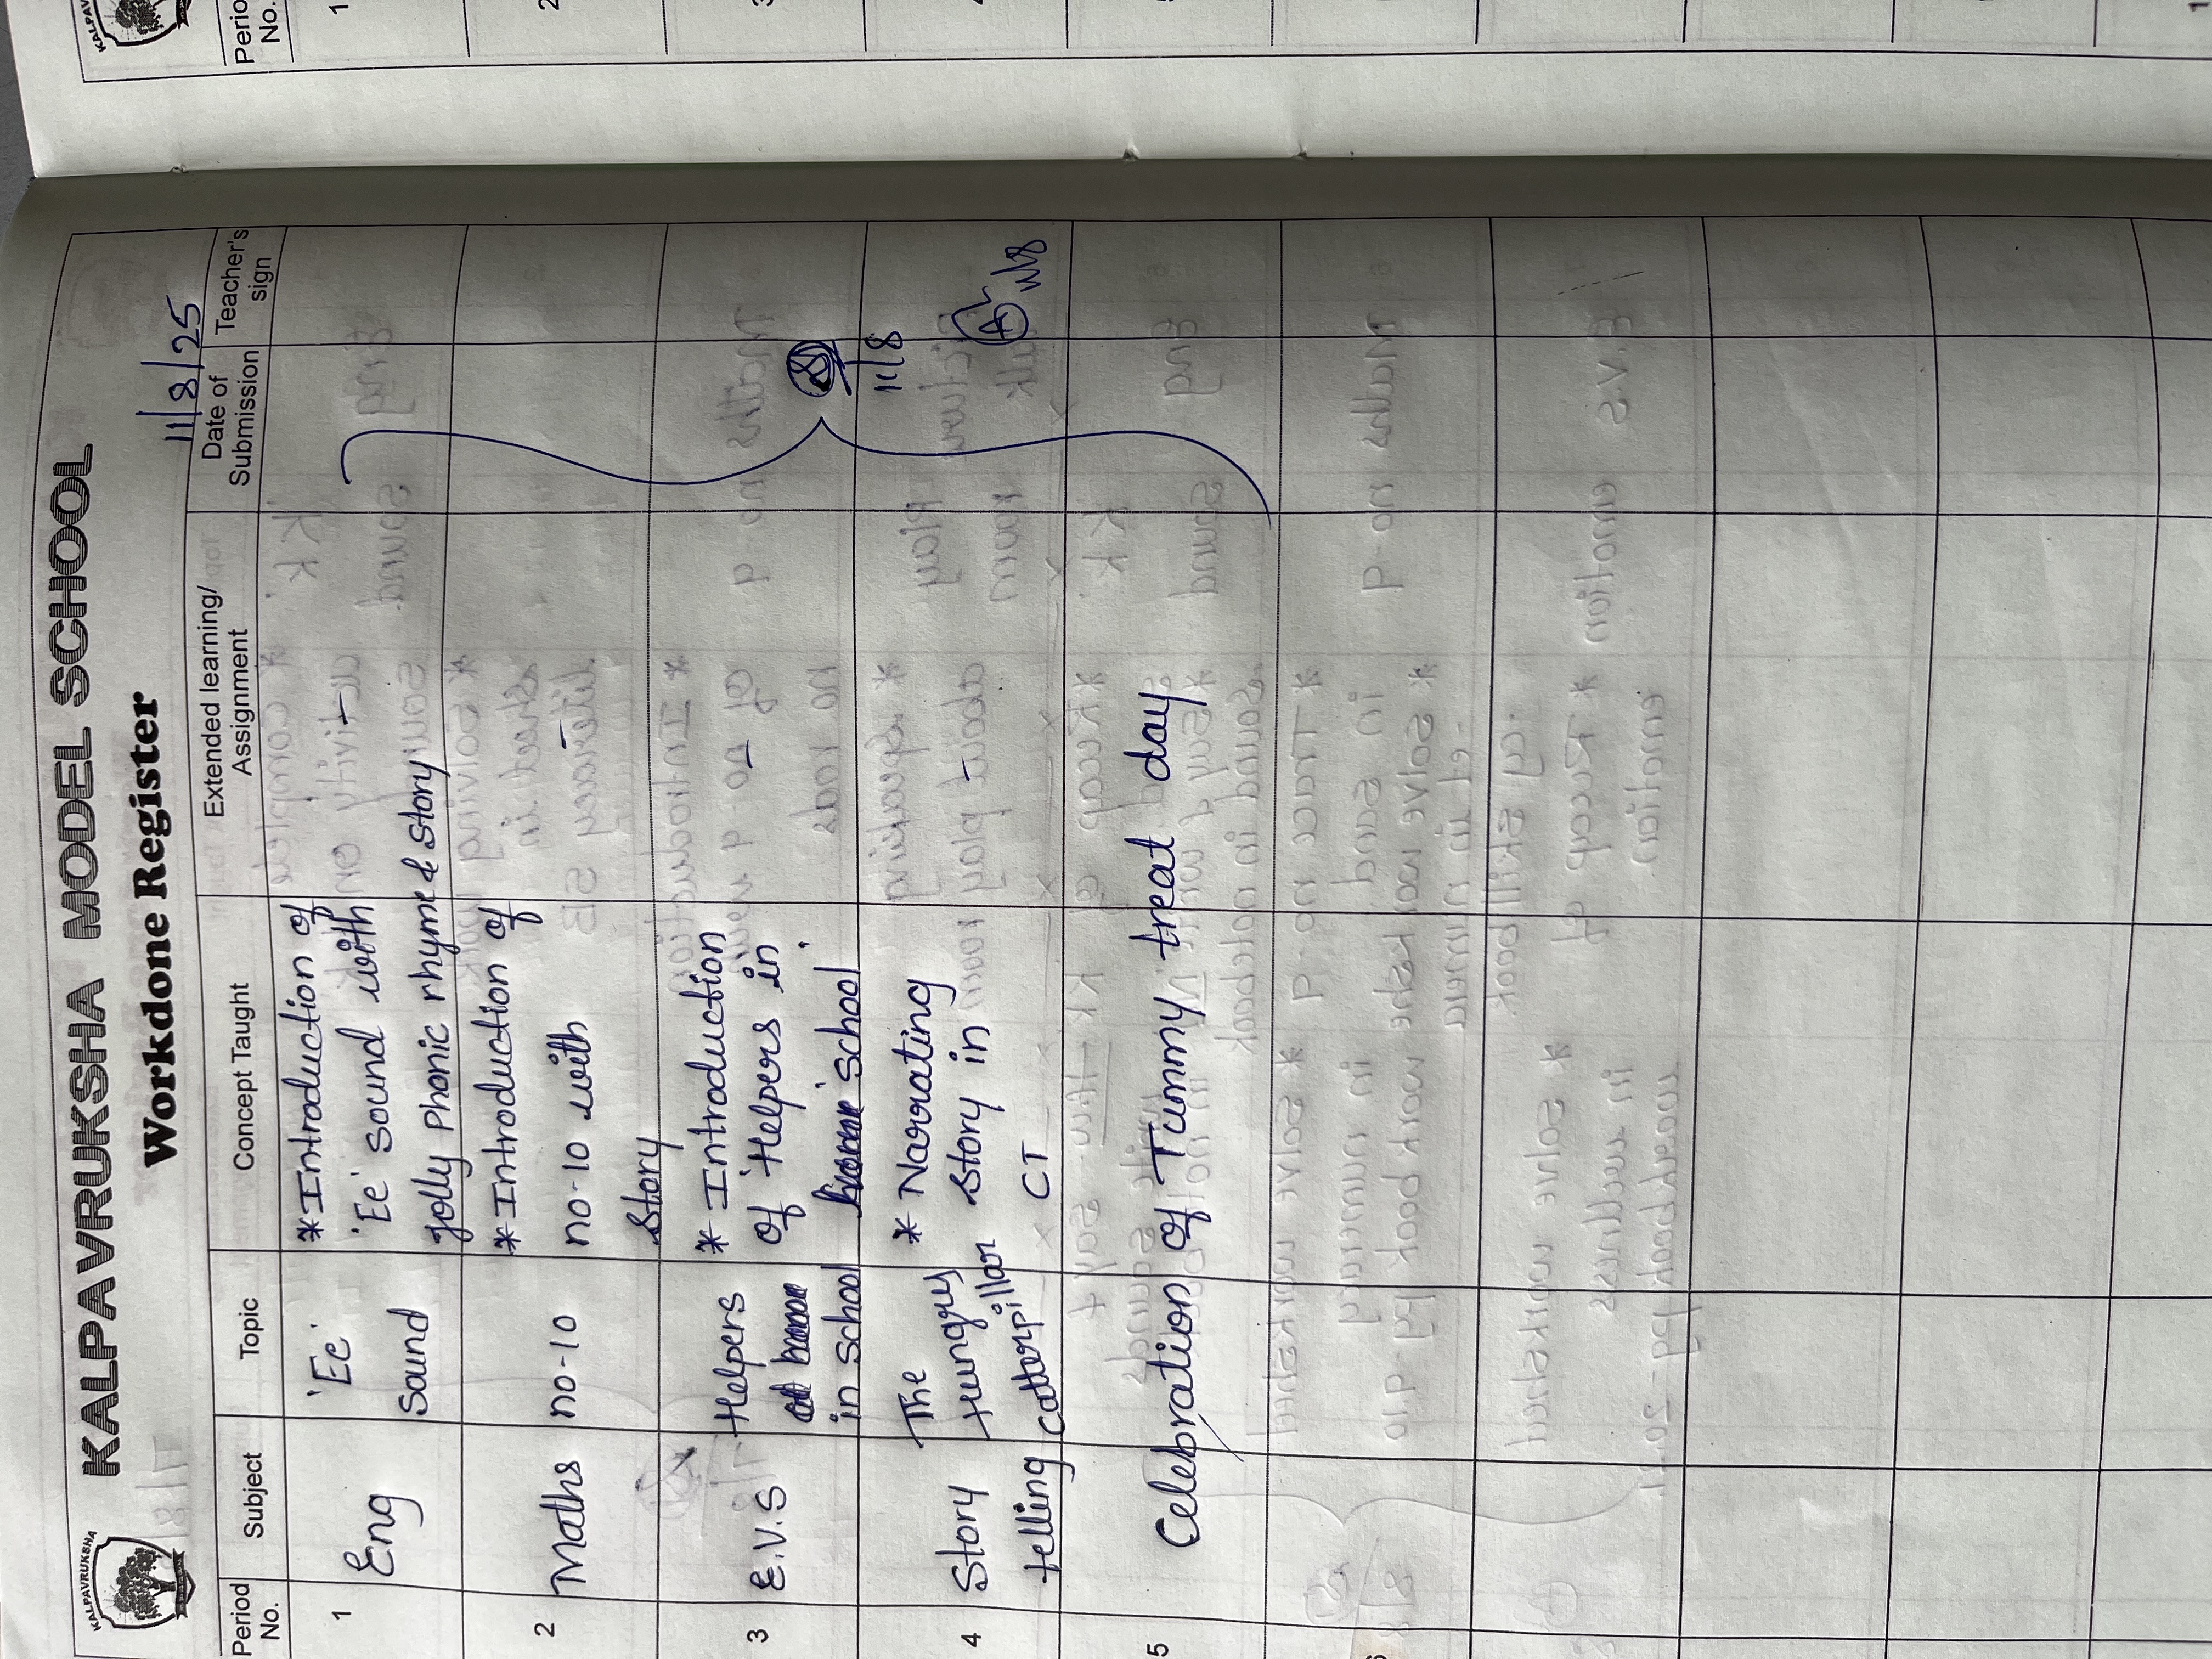 KALPAVRUKSHA
KALPAVRUKSHA MODEL SCHOOL
Workdone Register
11/8/25
Period No. Subject Topic Concept Taught Extended learning/ Assignment Date of Submission Teacher's sign
1 Eng 'Ee' Sound *Introduction of
'Ee' sound with
jolly phonic rhyme & story –
2 Maths no-10 *Introduction of
no-10 with
story –
3 E.V.S Helpers
in school
* Introduction
of 'Helpers in
school' –
4 Story telling
The Hungry
catterpillar
* Narrating
story in
CT –
11/8
11/8
5 Celebration of Tummy treat day
KALPAV
Perio
No.
1
2